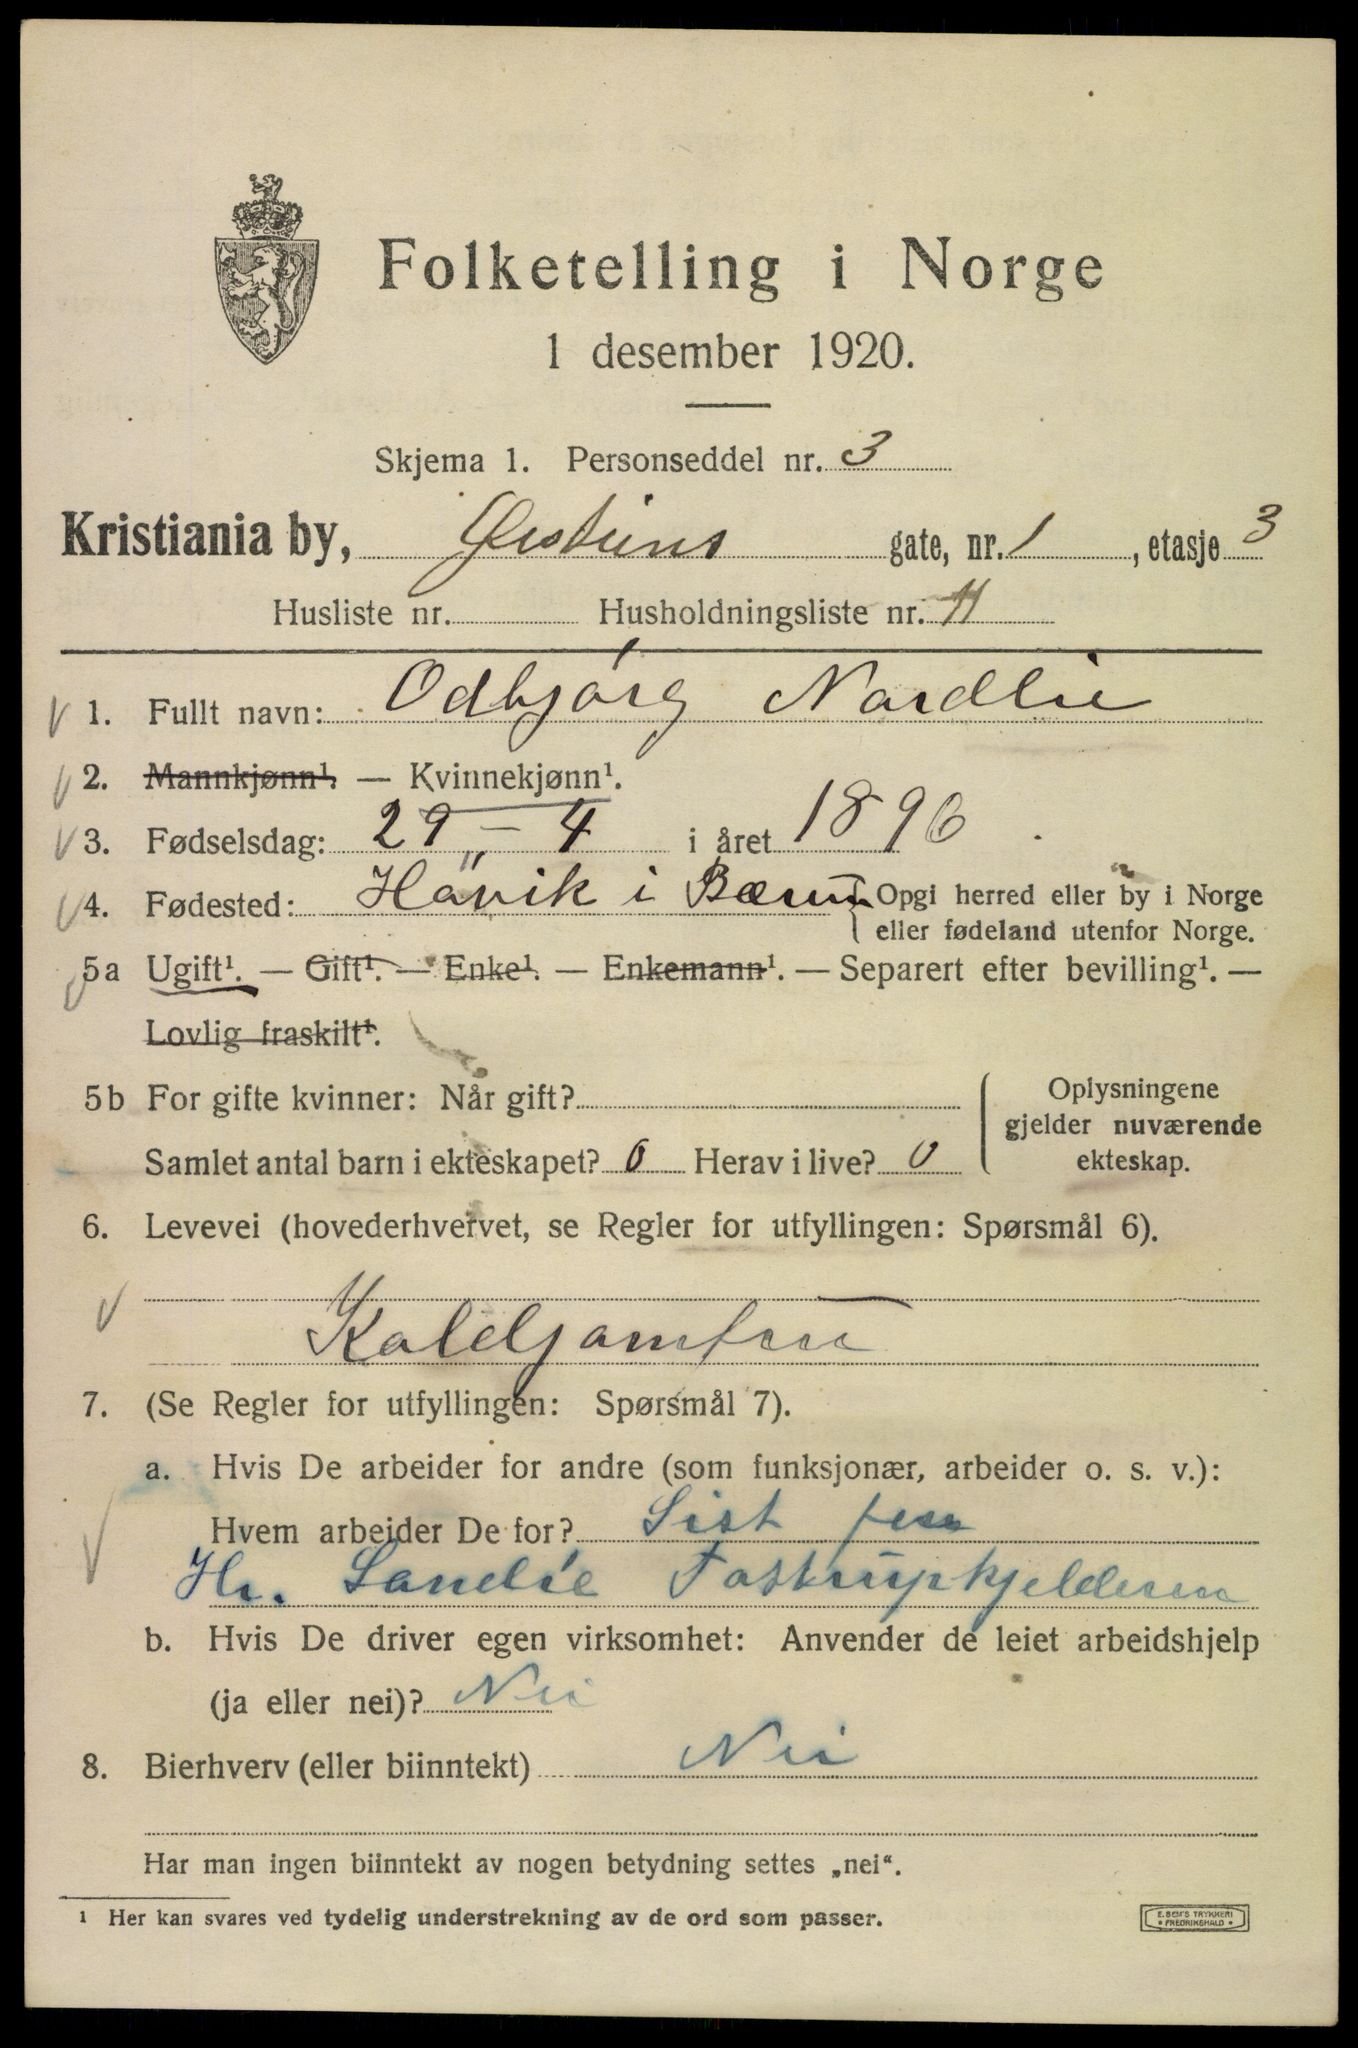 Folketelling i Norge
1 desember 1920.
Skjema 1. Personseddel nr. 3
Kristiania by, Øisteins gate, nr. 1, etasje 3
Husliste nr. Husholdningsliste nr. 11
1. Fullt navn: Odbjørg Nordlie
2. Mannkjønn¹. — Kvinnekjønn¹.
3. Fødselsdag: 29 – 4 i året 1896.
4. Fødested: Hövik i Bærum { Opgi herred eller by i Norge
eller fødeland utenfor Norge.
5a Ugift¹. — Gift¹. — Enke¹. — Enkemann¹. — Separert efter bevilling¹. —
Lovlig fraskilt¹.
5b For gifte kvinner: Når gift?
Samlet antal barn i ekteskapet? 0 Herav i live? 0
Oplysningene
gjelder nuværende
ekteskap.
6. Levevei (hovederhvervet, se Regler for utfyllingen: Spørsmål 6).
Koldjomfru
7. (Se Regler for utfyllingen: Spørsmål 7).
a. Hvis De arbeider for andre (som funksjonær, arbeider o. s. v.):
Hvem arbeider De for? Sist
Hr. Sandlie Tostrupkjelderen
b. Hvis De driver egen virksomhet: Anvender de leiet arbeidshjelp
(ja eller nei)? Nei
8. Bierhverv (eller biinntekt) Nei
Har man ingen biinntekt av nogen betydning settes „nei“.
¹ Her kan svares ved tydelig understrekning av de ord som passer.
E. SEM'S TRYKKERI
• FREDRIKSHALD •